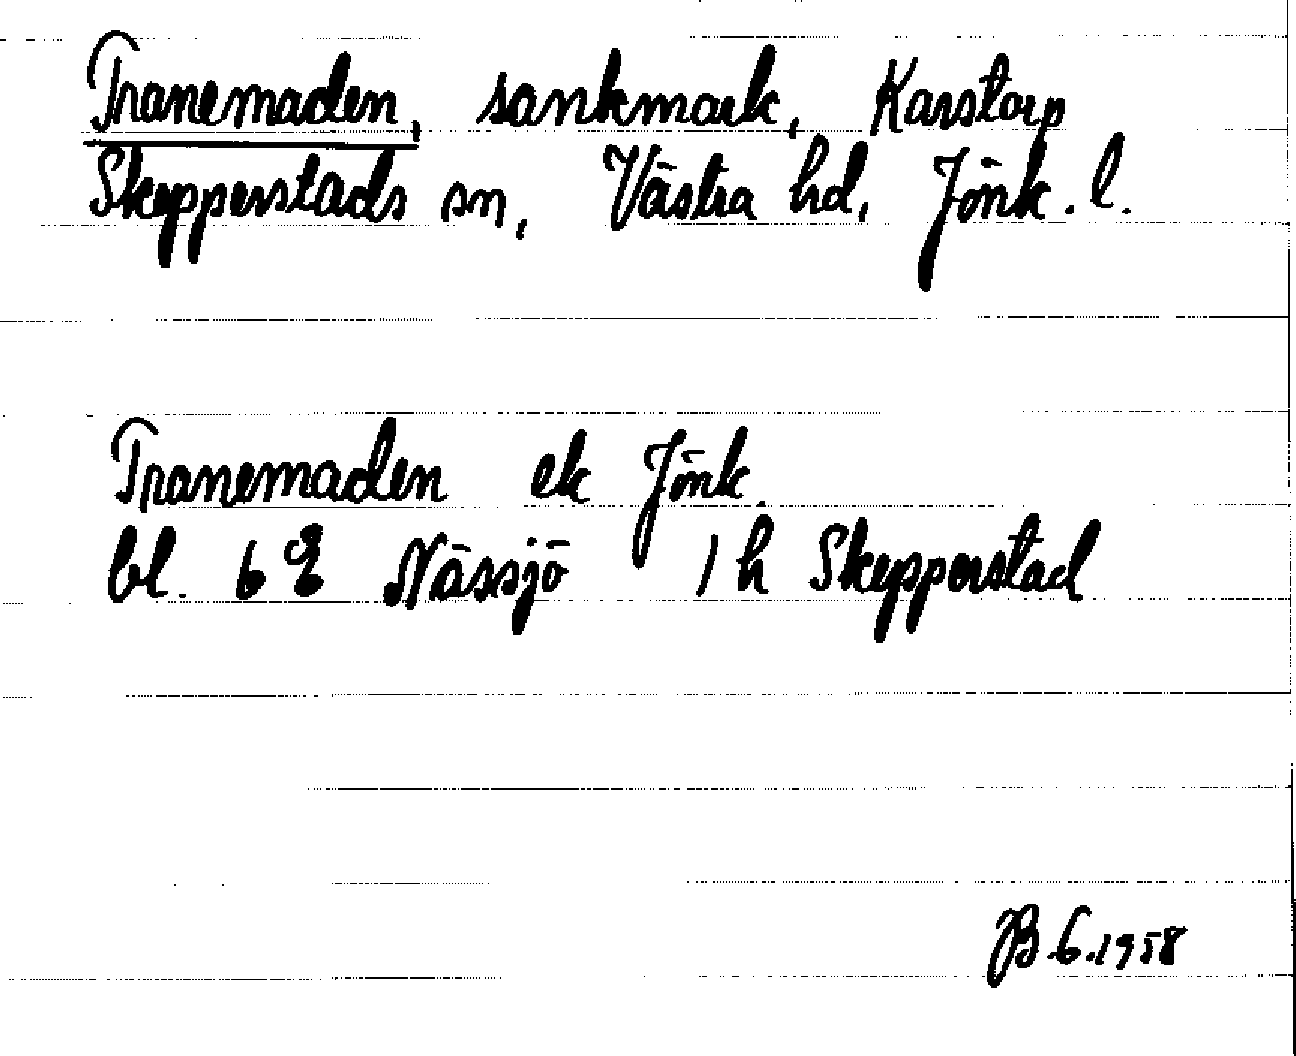 Tranemaden, sankmark, Karstorp
Skepperstads sn, Västra hd, Jönk. l.
Tranemaden ek Jönk.
bl. 6 E Nässjö 1 h Skepperstad
JB. 6. 1958